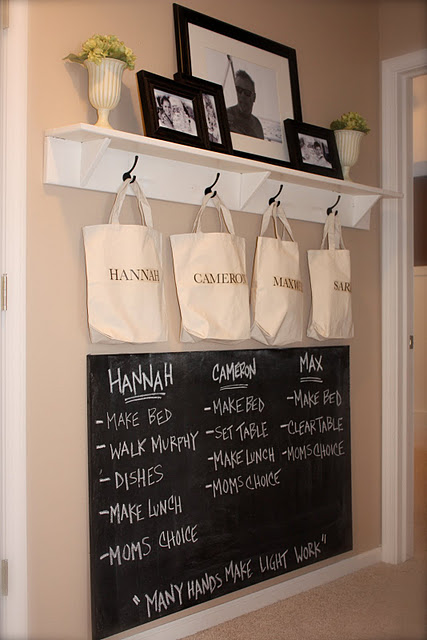 HANNAH
CAMERON
MAX
SAR
HANNAH
- MAKE BED
- WALK MURPHY
- DISHES
- MAKE LUNCH
- MOMS CHOICE
CAMERON
- MAKE BED
- SET TABLE
- MAKE LUNCH
- MOMS CHOICE
MAX
- MAKE BED
- CLEAR TABLE
- MOMS CHOICE
"MANY HANDS MAKE LIGHT WORK"